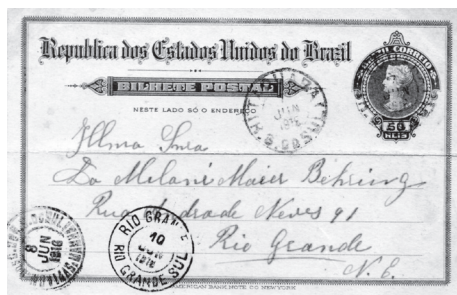 Republica dos Estados Unidos do Brazil
BILHETE POSTAL
NESTE LADO SÓ O ENDEREÇO
CORREIO
50
RÉIS
JUN
DO SUL
Illma Snra
Da Melani Maier Behring
Rua Andrade Neves 91
Rio Grande
N. C.
8
JUN
RIO GRANDE
10
JUN
1918
RIO GRANDE SUL
AMERICAN BANK NOTE CO NEW YORK